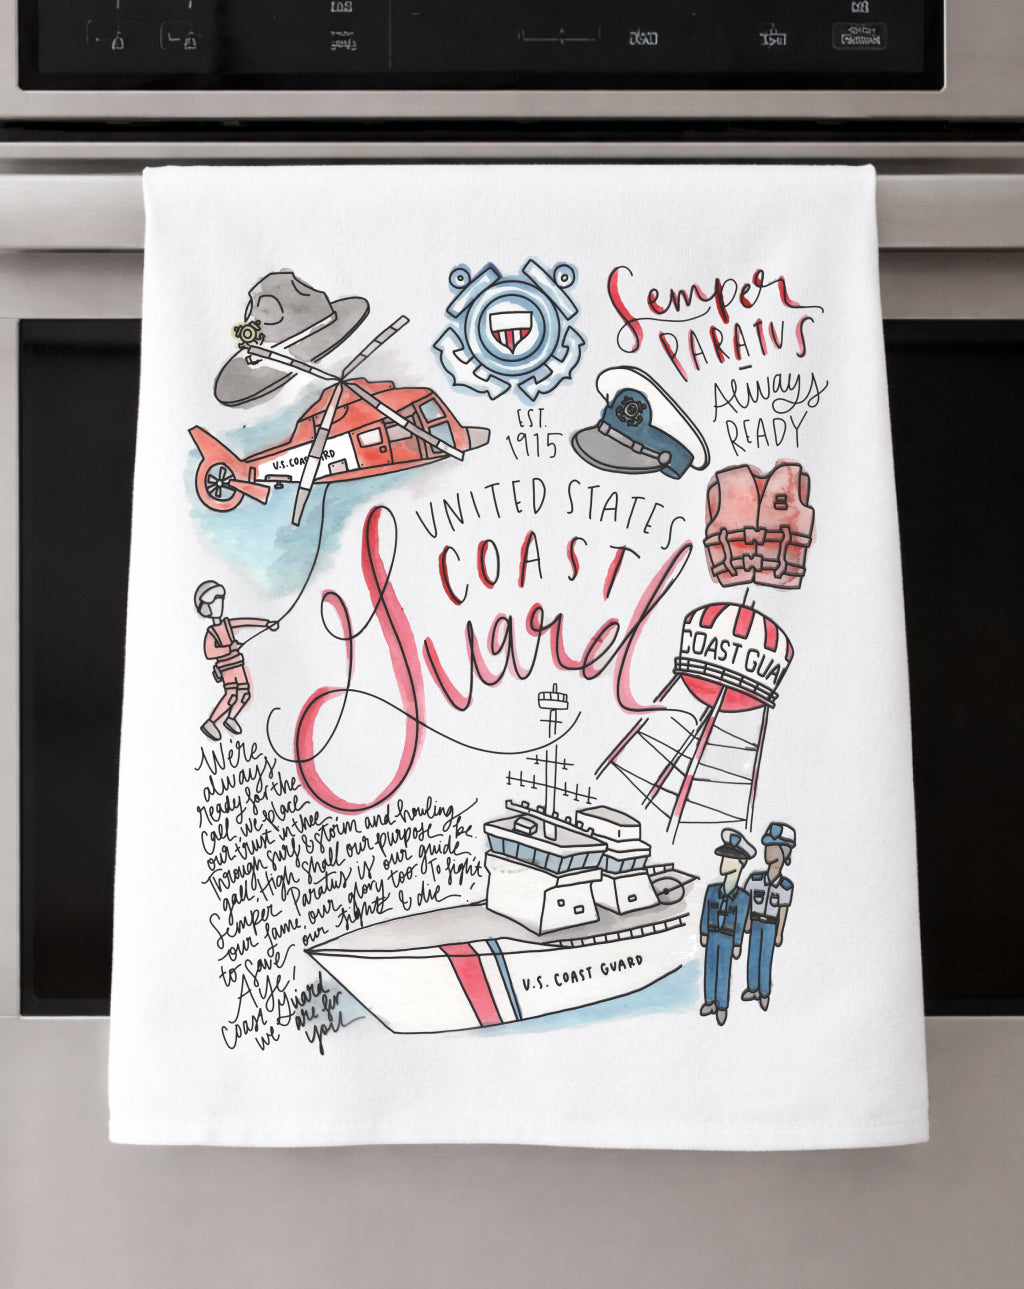 Semper
PARATUS
Always
READY
EST.
1915
U.S. COAST GUARD
UNITED STATES
COAST
Guard
COAST GUA
We're
always
ready for the
call, we place
our trust in thee
Through surf & storm and howling
gale, High shall our purpose be
Semper Paratus is our guide
our fame, our glory too. To fight
to save our fight & die
Aye!
Coast Guard
we are for
you!
U.S. COAST GUARD